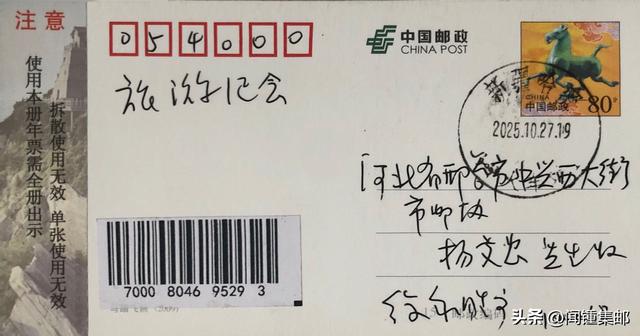 注意
使用本册年票需全册出示
拆散使用无效 单张使用无效
054000
中国邮政
CHINA POST
CHINA
中国邮政
80分
新疆哈密
2025.10.27.19
旅游纪念
河北省邢台市中兴西大街
市邮协
杨文忠 先生收
7000 8046 9529 3
头条 @闻锺集邮